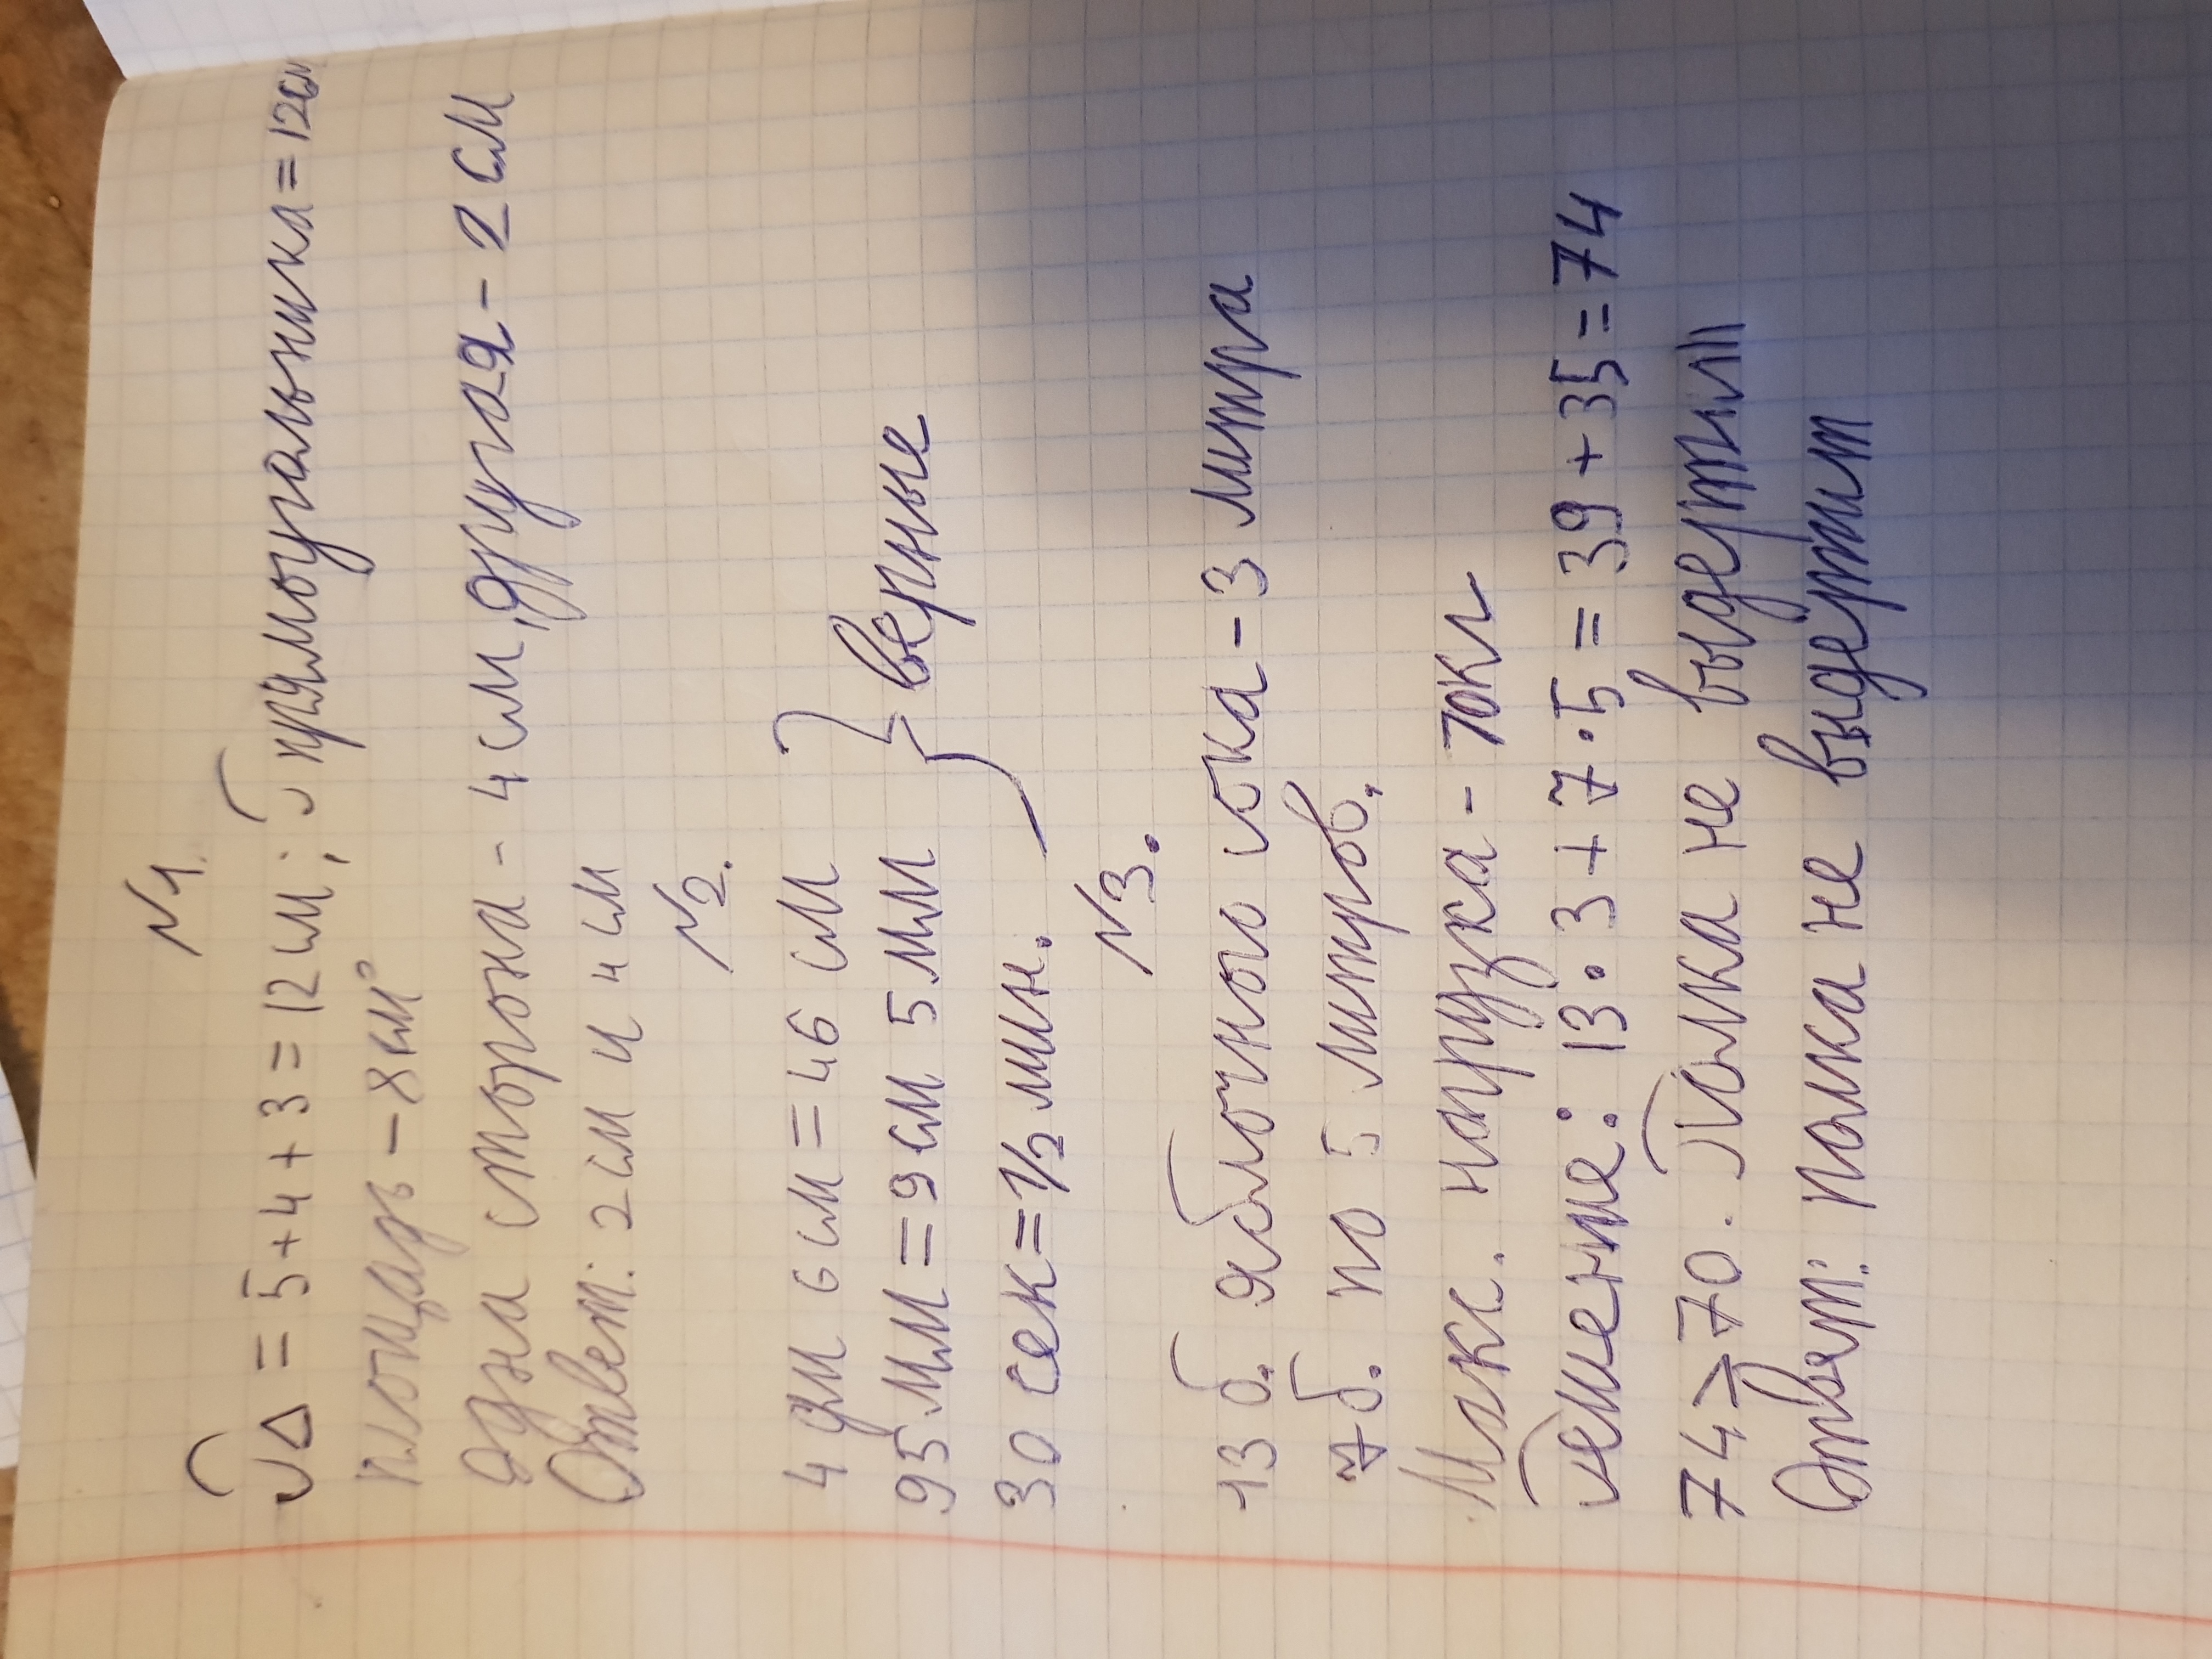 №1.
PΔ = 5+4+3 = 12 см; Pпрямоугольника = 12см
площадь – 8 см²
одна сторона – 4 см, другая – 2 см
Ответ: 2 см и 4 см
№2.
4 дм 6 см = 46 см
95 мм = 9 см 5 мм } верные
30 сек = 1/2 мин.
№3.
13 б. яблочного сока – 3 литра
7 б. по 5 литров.
Макс. нагрузка – 70кг
Решение: 13·3 + 7·5 = 39 + 35 = 74
74 ⩾ 70. Полка не
Ответ: полка не выдержит